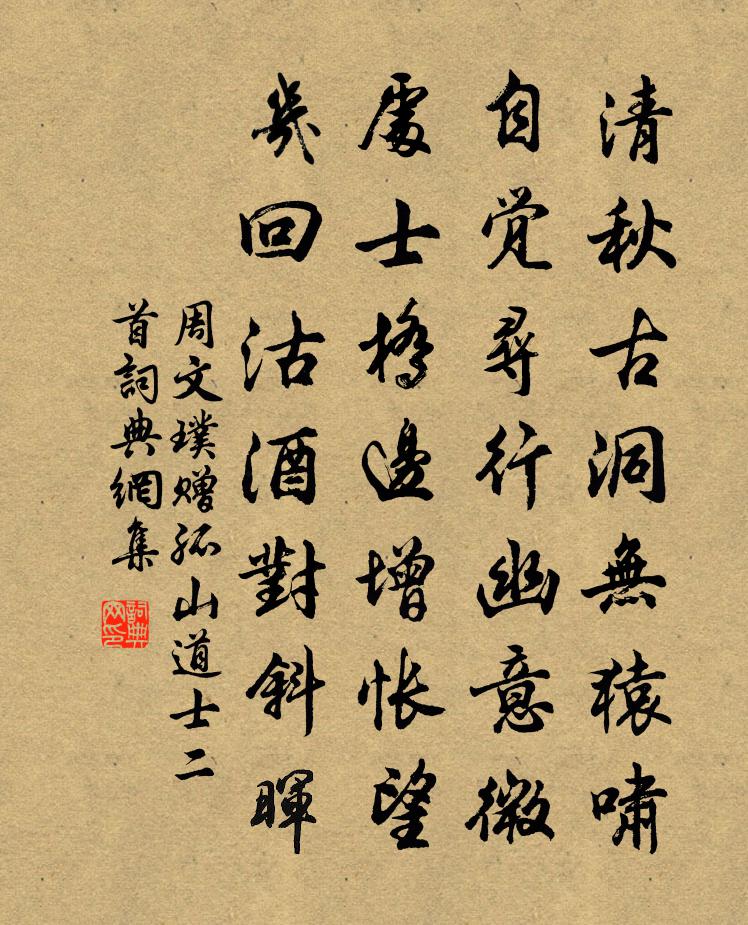 清秋古洞無猿嘯
自覺尋行幽意微
處士橋邊增悵望
幾回沽酒對斜暉
周文璞贈孤山道士二
首詞典網集
詞典網印